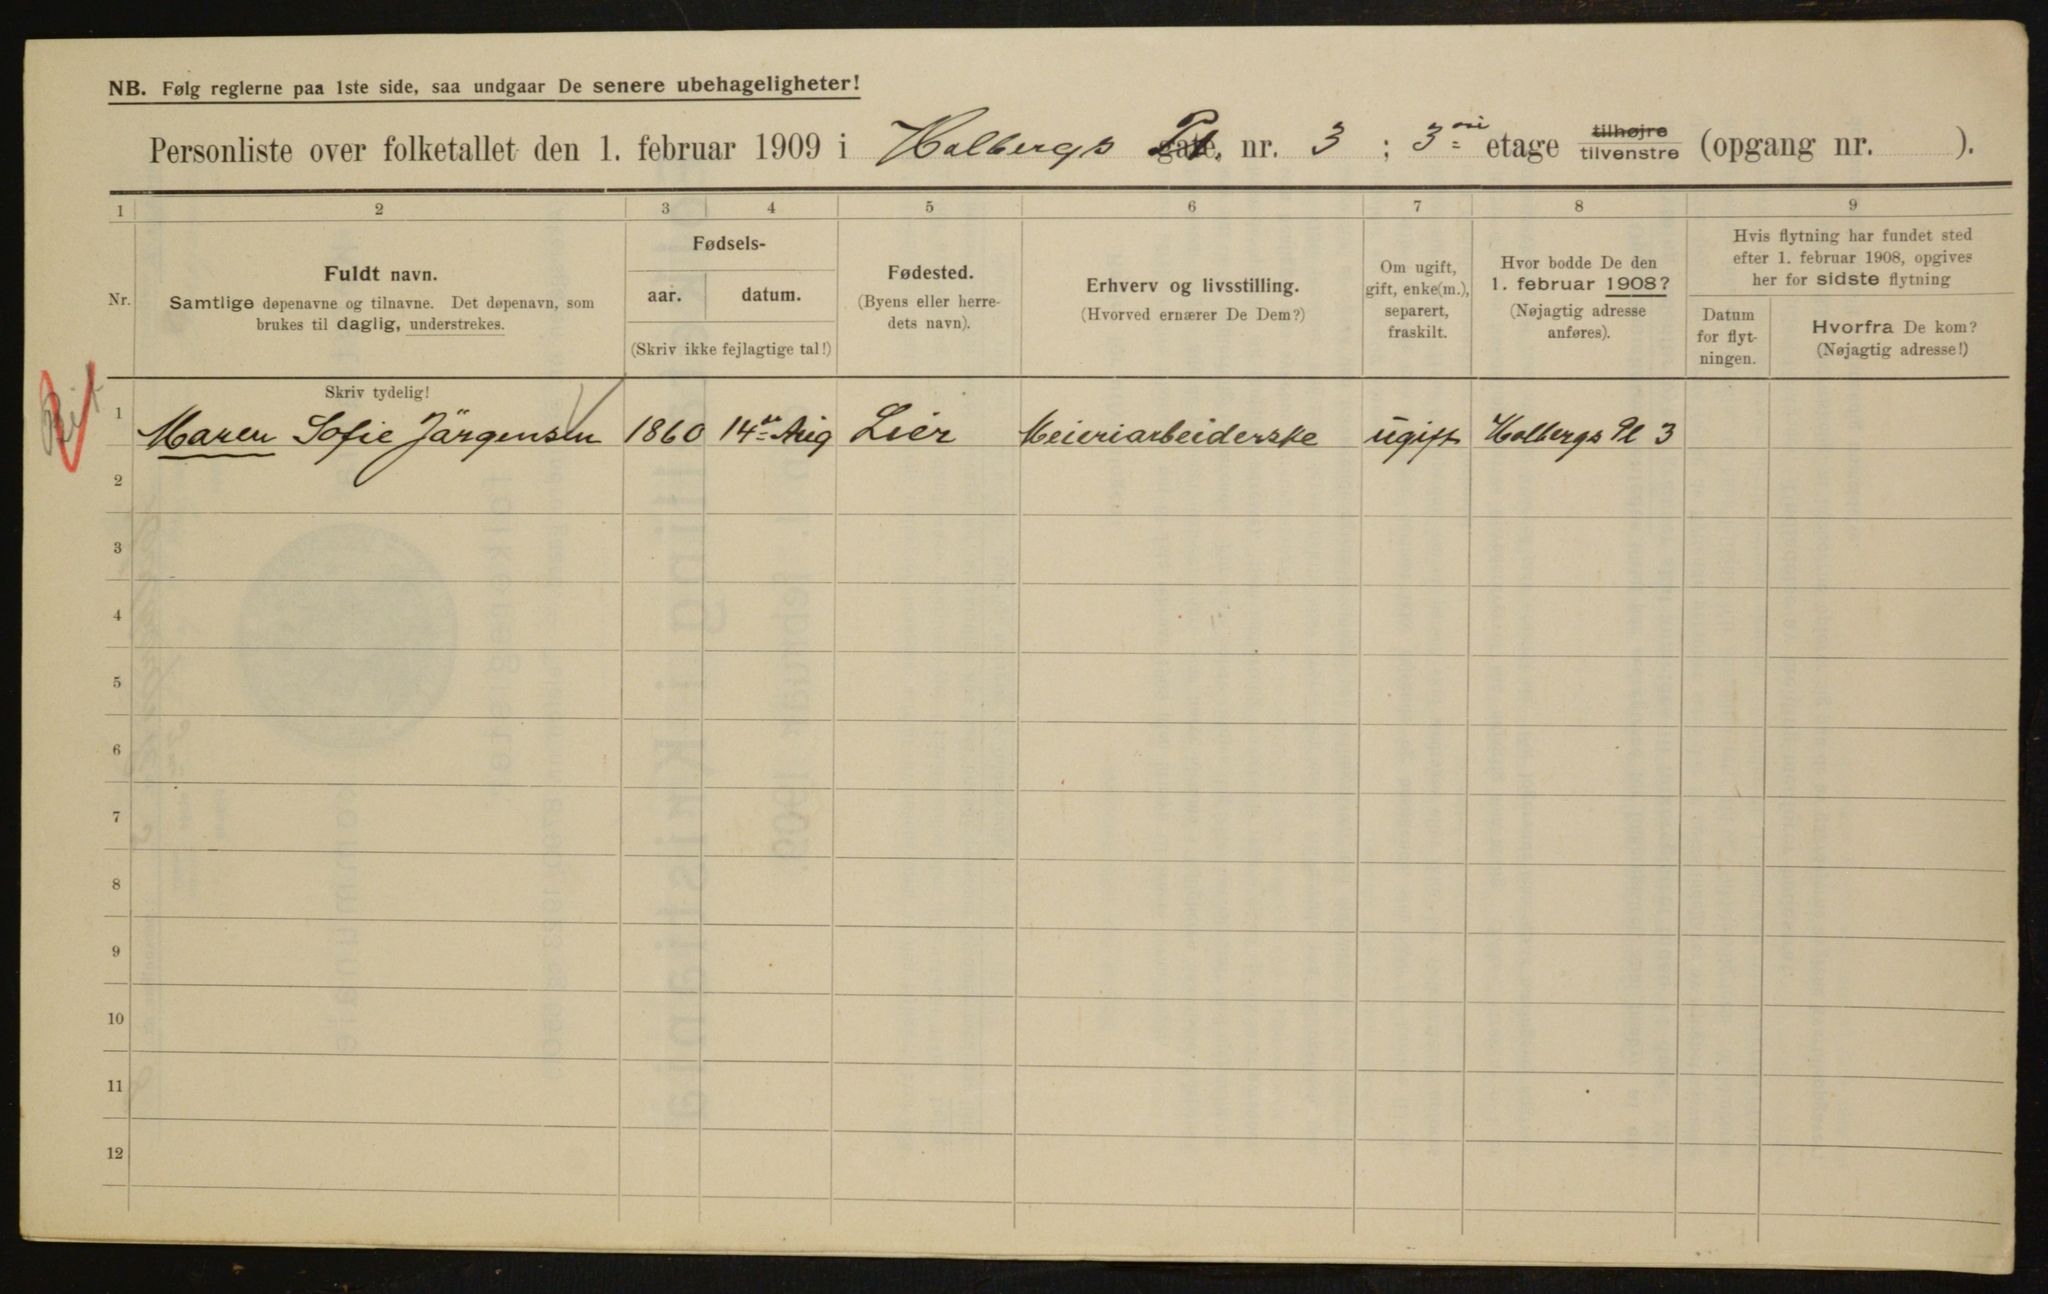 NB. Følg reglerne paa 1ste side, saa undgaar De senere ubehageligheter!
Personliste over folketallet den 1. februar 1909 i Holbergs Pl. nr. 3 ; 3 etage tilhøjre tilvenstre (opgang nr. ).
1 2 3 4 5 6 7 8 9
Nr.
Fuldt navn.
Samtlige døpenavne og tilnavne. Det døpenavn, som
brukes til daglig, understrekes.
Fødsels-
aar. datum.
(Skriv ikke fejlagtige tal!)
Fødested.
(Byens eller herre-
dets navn).
Erhverv og livsstilling.
(Hvorved ernærer De Dem?)
Om ugift,
gift, enke(m.),
separert,
fraskilt.
Hvor bodde De den
1. februar 1908?
(Nøjagtig adresse
anføres).
Hvis flytning har fundet sted
efter 1. februar 1908, opgives
her for sidste flytning
Datum
for flyt-
ningen.
Hvorfra De kom?
(Nøjagtig adresse!)
Skriv tydelig!
1 Maren Sofie Jörgensen 1860 14de Aug Lier Meieriarbeiderske ugift Holbergs Pl 3
2
3
4
5
6
7
8
9
10
11
12